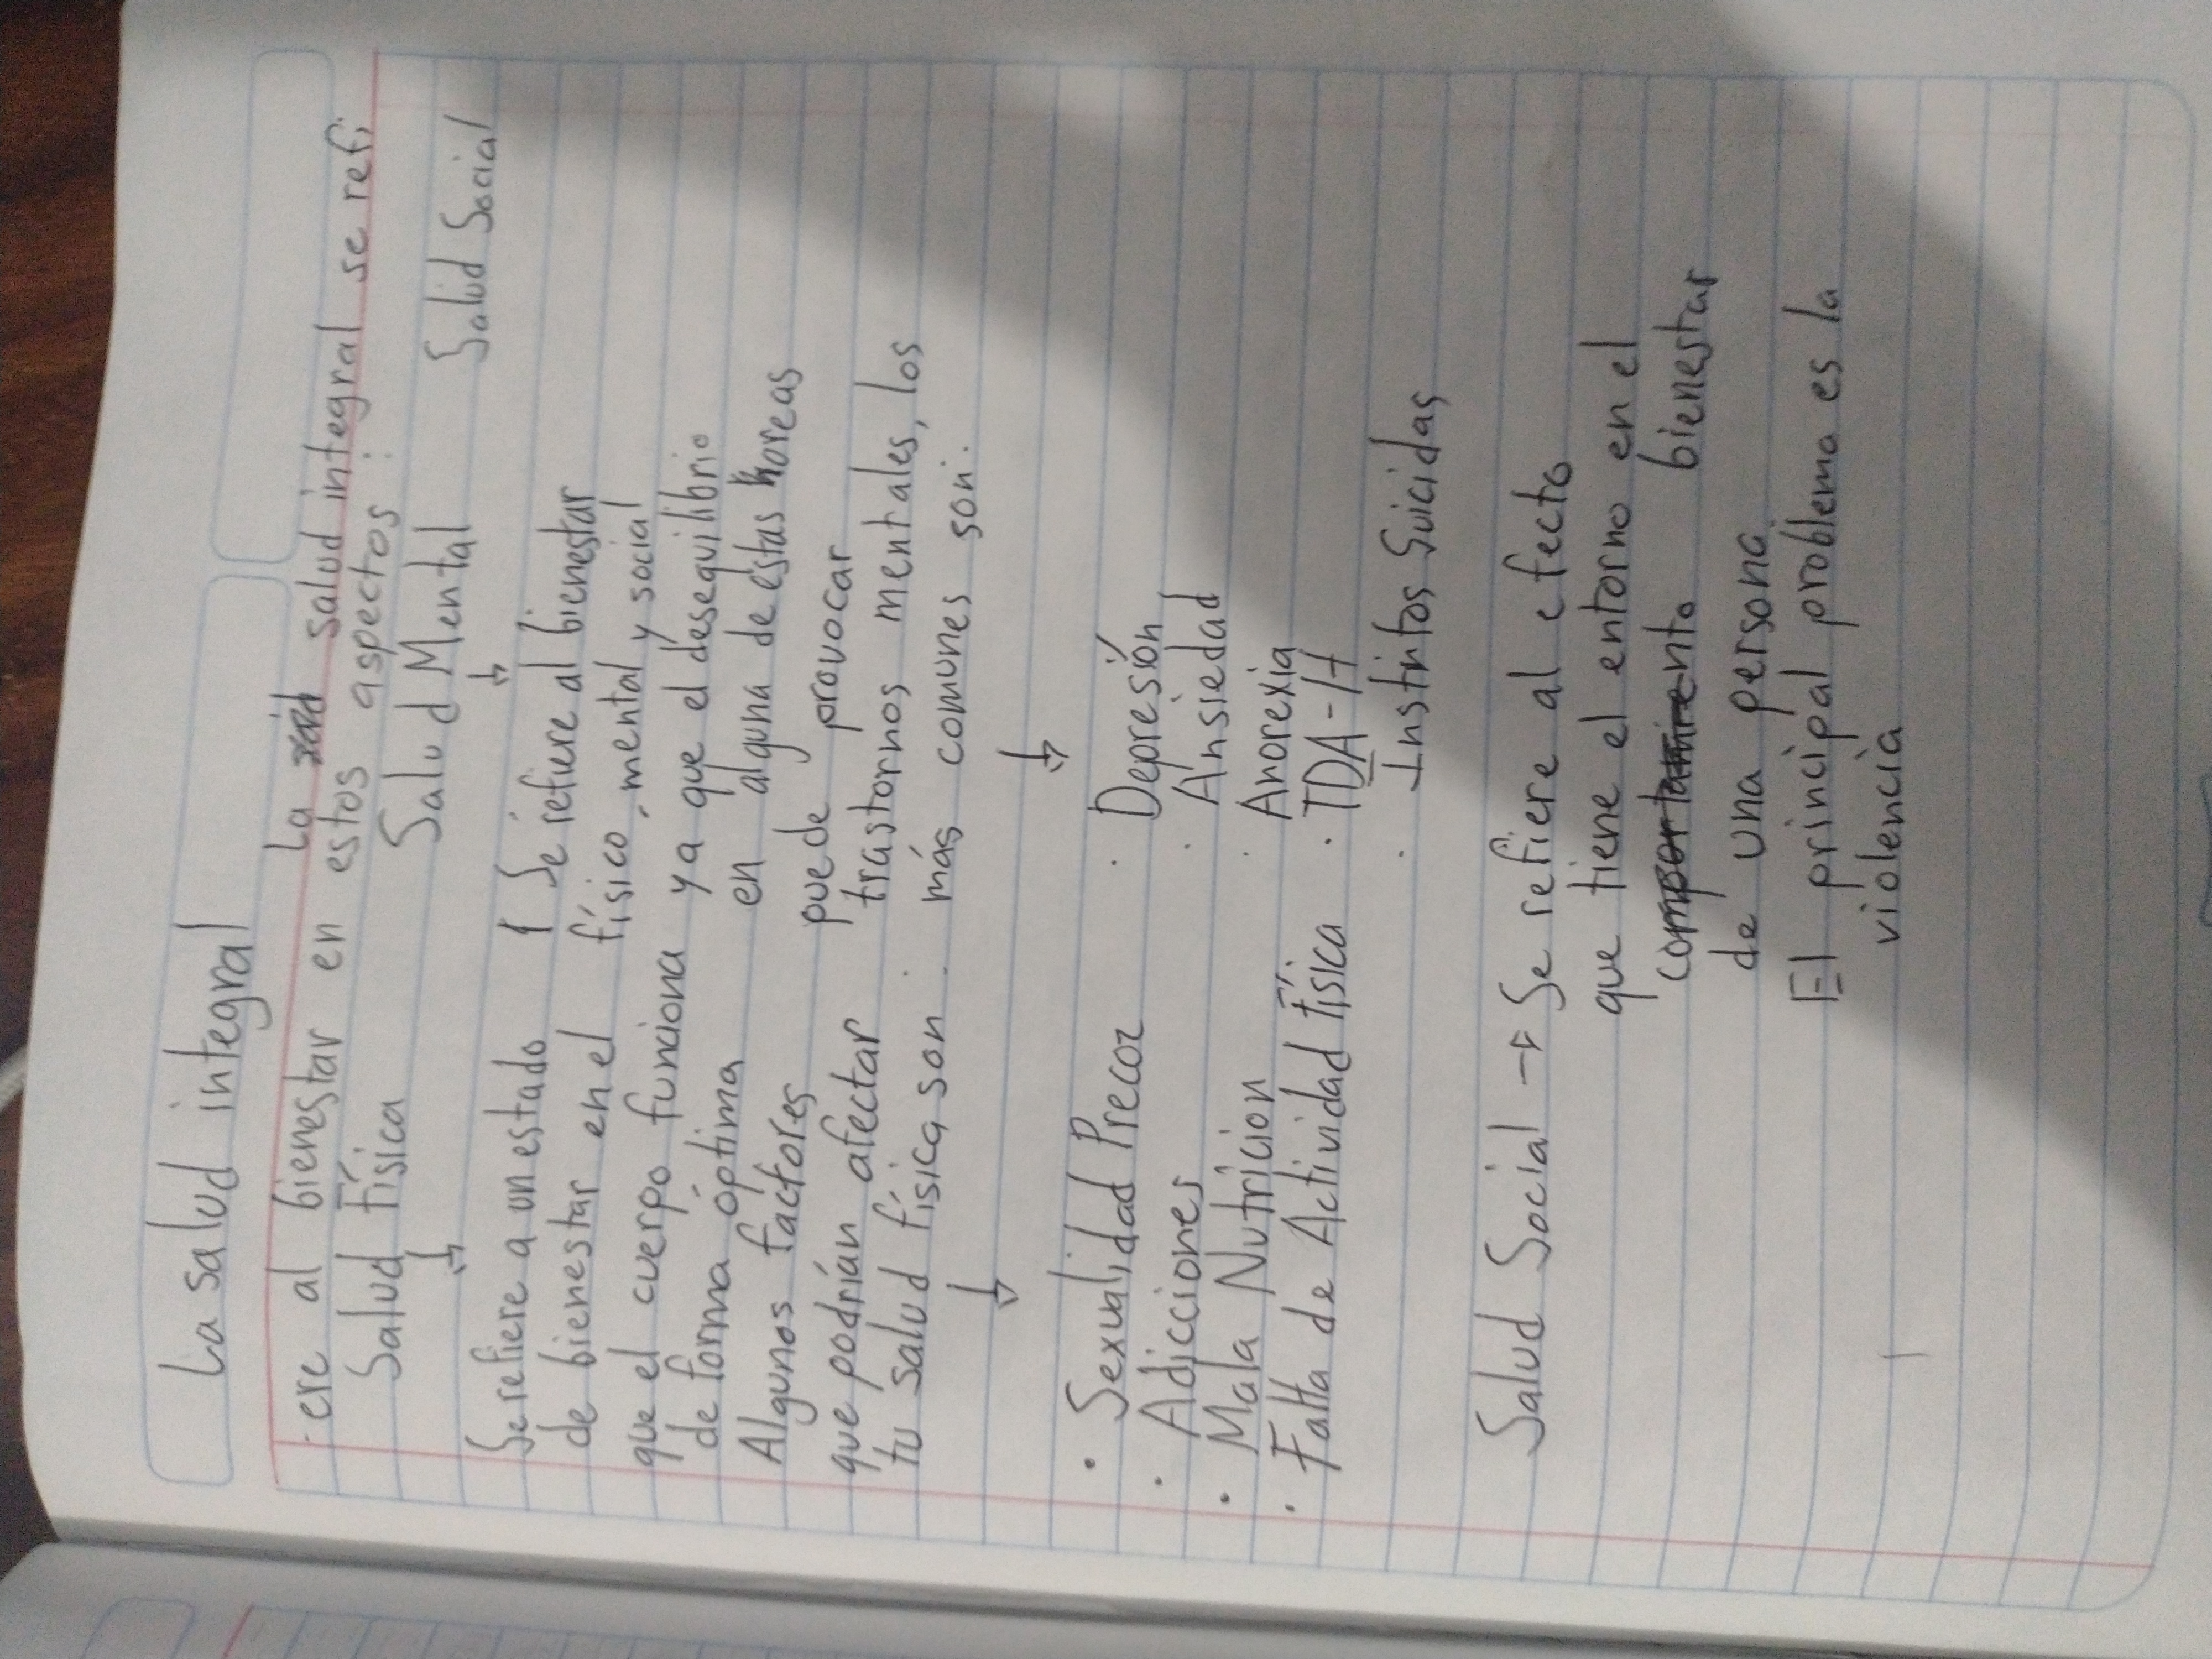 La salud integral
La salud integral se refi
ere al bienestar en estos aspectos:
Salud Física
Salud Mental
Salud Social
↓
Se refiere a un estado
de bienestar en el
que el cuerpo funciona
de forma óptima
Algunos factores
que podrían afectar
tu salud física son:
↓
• Sexualidad Precoz
• Adicciones
• Mala Nutricion
• Falta de Actividad Física
↓
Se refiere al bienestar
físico, mental y social
ya que el desequilibrio
en alguna de estas
puede provocar
trastornos mentales, los
más comunes son:
↓
• Depresión
• Ansiedad
• Anorexia
• TDA-H
• Instintos Suicidas
Salud Social → Se refiere al efecto
que tiene el entorno en el
comportamiento bienestar
de una persona
El principal problema es la
violencia